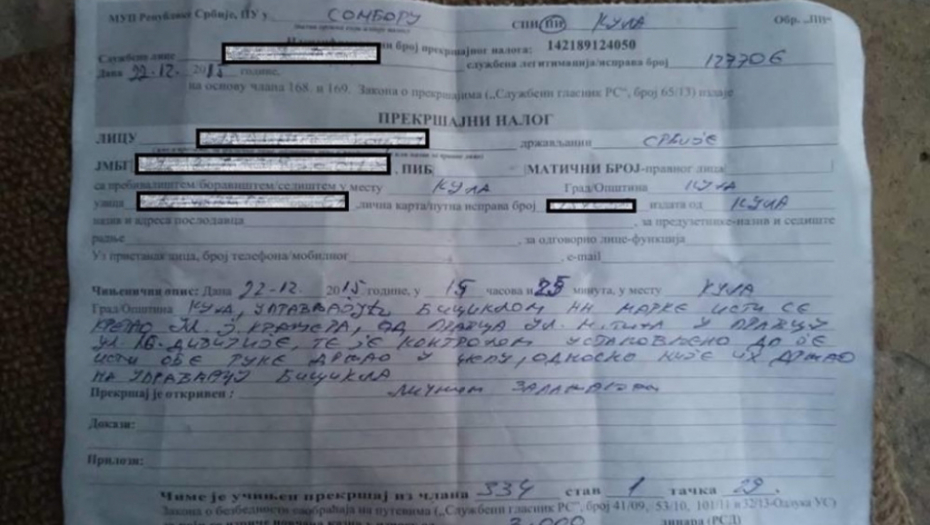 МУП Републике Србије, ПУ у СОМБОРУ СПИ/ПИ КУЛА Обр. „ПН“
број прекршајног налога: 142189124050
Службено лице службена легитимација/исправа број 127706
Дана 22-12. 2015 године,
на основу члана 168. и 169. Закона о прекршајима („Службени гласник РС“, број 65/13) издаје
ПРЕКРШАЈНИ НАЛОГ
ЛИЦУ држављанин СРБИЈЕ
ЈМБГ , ПИБ МАТИЧНИ БРОЈ-правног лица
са пребивалиштем/боравиштем/седиштем у месту КУЛА Град/Општина КУЛА
улица , лична карта/путна исправа број издата од КУЛА
назив и адреса послодавца , за предузетнике-назив и седиште
радње , за одговорно лице-функција
Уз пристанак лица, број телефона/мобилног , e-mail
Чињенични опис: Дана 22-12. 2015 године, у 15 часова и 25 минута, у месту КУЛА
Град/Општина КУЛА, УПРАВЉАЈУЋИ БИЦИКЛОМ НН МАРКЕ ИСТИ СЕ
КРЕТАО УЛ. Ј. КРАМЕРА, ОД ПРАВЦА УЛ. М. ТИТА У ПРАВЦУ
УЛ 16. ДИВИЗИЈЕ, ТЕ ЈЕ КОНТРОЛОМ УСТАНОВЉЕНО ДА ЈЕ
ИСТИ ОБЕ РУКЕ ДРЖАО У ЏЕПУ, ОДНОСНО НИЈЕ ИХ ДРЖАО
НА УПРАВЉАЧУ БИЦИКЛА
Прекршај је откривен : ЛИЧНИМ ЗАПАЖАЊЕМ
Докази:
Прилози:
Чиме је учињен прекршај из члана 334 став 1 тачка 29
Закона о безбедности саобраћаја на путевима („Службени гласник РС“, број 41/09, 53/10, 101/11 и 32/13-Одлука УС)
3.000 динара (РСД)